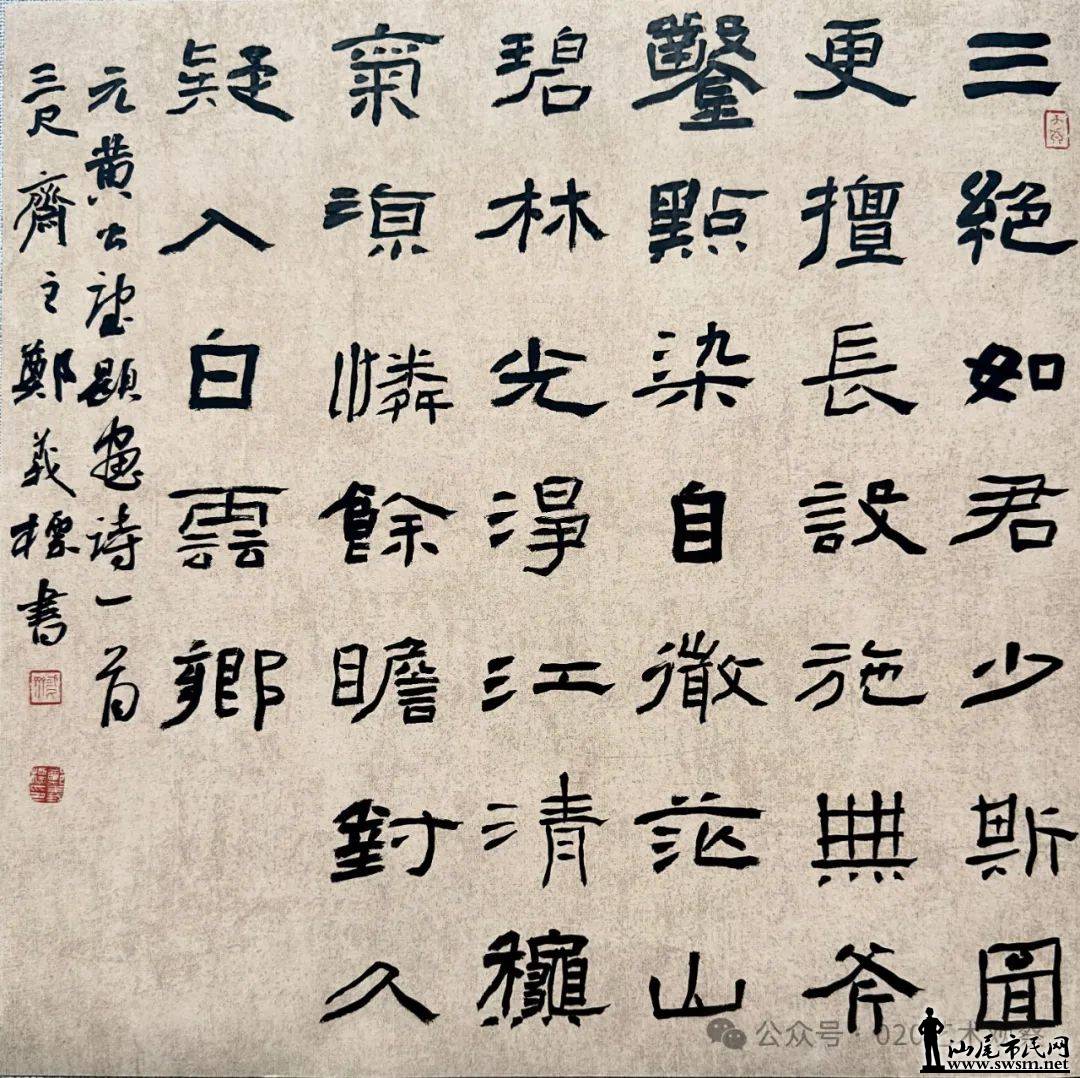 三絕如君少斯圖
更擅長設施無斧
鑿點染自微茫山
碧林光淨江清龝
氣涼憐餘瞻對久
疑入白雲鄉
元黃公望題畫詩一首
三尺齋主鄭義標書
公众号 · 020
汕尾市民网
www.swsm.net